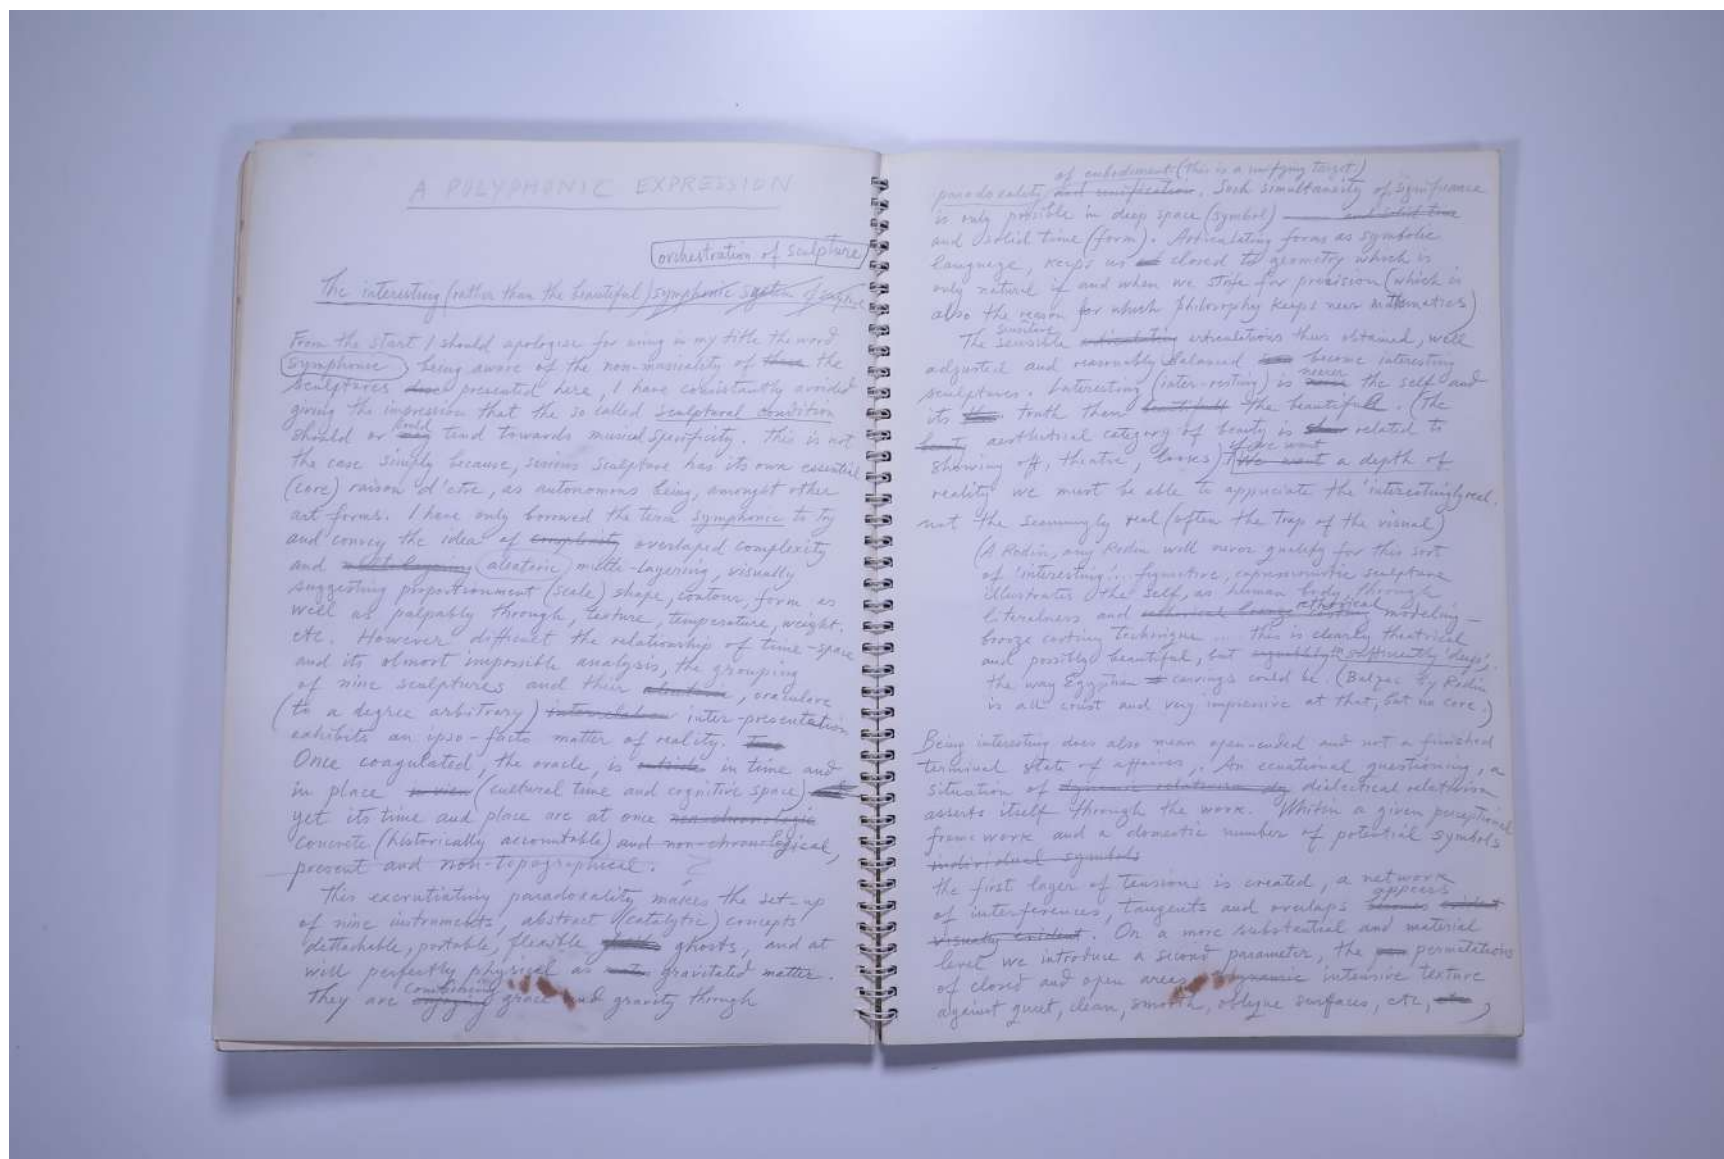 A POLYPHONIC EXPRESSION
orchestration of sculpture
The interesting (rather than the beautiful) symphonic system of
From the start I should apologise for using in my title the word
symphonic being aware of the non-musicality of the
sculptures presented here, I have consistantly avoided
giving the impression that the so called sculptural condition
should or could tend towards musical specificity. This is not
the case simply because, serious sculpture has its own essential
(core) raison d'etre, as autonomous being, amongst other
art forms. I have only borowed the term symphonic to try
and convey the idea of complexity overlaped complexity
and multi-layering aleatoric multe-layering, visually
suggesting proportionment (scale) shape, contour, form as
well as palpably through, texture, temperature, weight.
etc. However difficult the relationship of time-space
and its olmost impossible analysis, the grouping
of nine sculptures and their , oraculare
(to a degree arbitrary) interrelation inter-presentation
exhibits an ipso-facto matter of reality. Time
Once coagulated, the oracle, is outside in time and
in place in view (cultural time and cognitive space)
yet its time and place are at once non-chronologic
concrete (historically accountable) and non-chronological,
present and non-topographical.
This excrutiating paradoxality makes the set-up
of nine instruments, abstract (catalytic) concepts
dettachable, portable, flexible ghosts, and at
will perfectly physical as gravitated matter.
combining
They are engaging grace and gravity through
of embodiment (this is a unifying target)
paradoxality and unification. Such simultaneity of significance
is only possible in deep space (symbol) and solid time
and solid time (form). Articulating forms as symbolic
language, keeps us closed to geometry which is
only natural if and when we strife for precision (which is
also the reason for which philosophy keeps near mathematics)
sensitive
The sensible articulations thus obtained, well
adjusted and reasonably balanced become interesting
nearer
sculptures. Interesting (inter-resting) is the self and
its truth then beautifull the beautiful. (The
beauty aesthetical category of beauty is related to
if we want
showing off, theatre, looses) We want a depth of
reality we must be able to appreciate the 'interestingly real.
not the seemingly real (often the trap of the visual)
(A Rodin, any Rodin will never qualify for this sort
of 'interesting'... figurative, expressionistic sculpture
illustrates the self, as human body, through
literalness and modeling-
bronze casting technique ... this is clearly theatrical
and possibly beautiful, but sufficiently 'deep',
the way Egyptian carvings could be. (Balzac by Rodin
is all crust and very impressive at that, but no core.)
Being interesting does also mean open-ended and not a finished
terminal state of affaires. An questioning, a
situation of dialectical relativism
asserts itself through the work. Whitin a given perceptional
framework and a domestic number of potential symbols
individual symbols
the first layer of tensions is created, a network
appears
of interferences, tangents and overlaps becomes evident
visually evident. On a more substantial and material
level we introduce a second parameter, the permutations
of closed and open areas, dynamic intensive texture
against quiet, clean, smooth, oblique surfaces, etc,